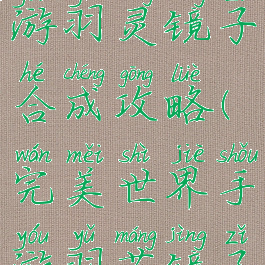 游羽灵镜子
hé chéng gōng lüè
合成攻略(
wán měi shì jiè shǒu
完美世界手
yóu yǔ máng jìng zǐ
游羽芒镜子